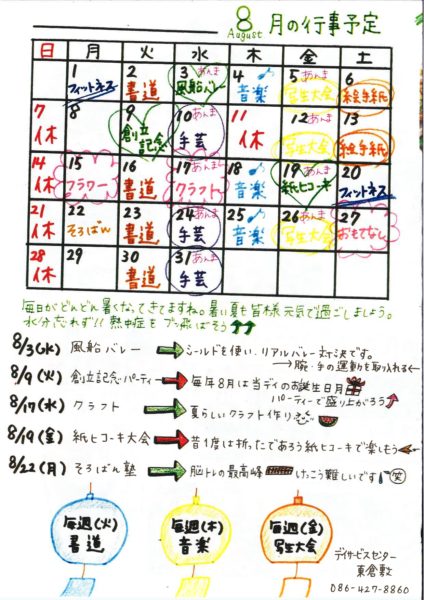 8月の行事予定
August
日 月 火 水 木 金 土
1 2 3 あんま 4 5 あんま 6
フィットネス 書道 風船バレー 音楽 写生大会 絵手紙
7 8 9 10 あんま 11 12 あんま 13
休 創立記念 手芸 休 写生大会 絵手紙
14 15 16 17 あんま 18 19 あんま 20
休 フラワー 書道 クラフト 音楽 紙ヒコーキ フィットネス
21 22 23 24 あんま 25 26 あんま 27
休 そろばん 書道 手芸 音楽 写生大会 おもてなし
28 29 30 31 あんま
休 書道 手芸
毎日がどんどん暑くなってきてますね。暑い夏も皆様元気で過ごしましょう。
水分忘れず!!熱中症もブッ飛ばそう
8/3(水) 風船バレー シールドを使い、リアルバレー対決です。
腕・手の運動を取り入れる
8/9(火) 創立記念パーティー 毎年8月は当デイのお誕生日月
パーティーで盛り上がろう
8/17(水) クラフト 夏らしいクラフト作り
8/19(金) 紙ヒコーキ大会 昔1度は折ったであろう紙ヒコーキで楽しもう
8/22(月) そろばん塾 脳トレの最高峰 けっこう難しいです 笑
毎週(火)
書道
毎週(木)
音楽
毎週(金)
写生大会
デイサービスセンター
東倉敷
086-427-8860